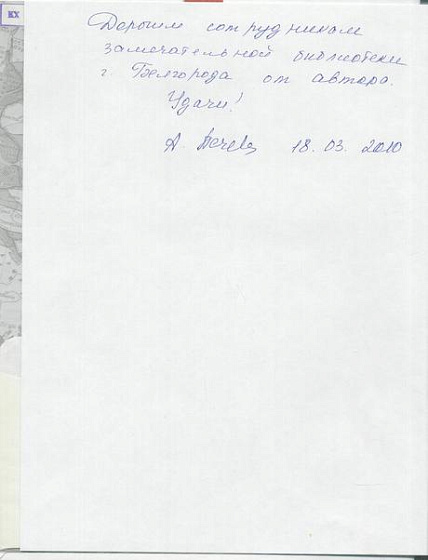 КХ
Дорогим сотрудникам
замечательной библиотеки
г. Белгорода от автора.
Удачи!
А. 18.03.2010